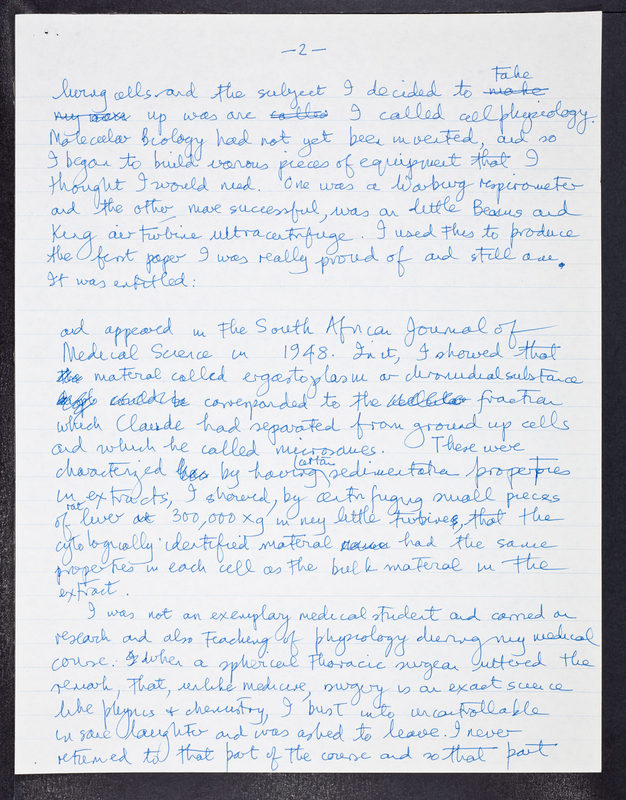 —2—
living cells and the subject I decided to Take ~~make~~
~~my own~~ up was one ~~called~~ I called cell physiology.
Molecular Biology had not yet been invented, and so
I began to build various pieces of equipment that I
thought I would need. One was a Warburg respirometer
and the other, more successful, was a little Beams and
King air turbine ultracentrifuge. I used this to produce
the first paper I was really proud of and still am.
It was entitled:
and appeared in The South African Journal of
Medical Science in 1948. In it, I showed that
~~the~~ material called ergastoplasm or chromidial substance
~~could be~~ corresponded to the fraction
which Claude had separated from ground up cells
and which he called microsomes. These were
characterized by having certain sedimentation properties
in extracts, I showed, by centrifuging small pieces
of rat liver at 300,000 xg in my little turbine, that the
cytologically identified material had the same
properties in each cell as the bulk material in the
extract.
I was not an exemplary medical student and carried on
research and also Teaching of physiology during my medical
course. When a spherical Thoracic surgeon uttered the
remark, That, unlike medicine, surgery is an exact science
like physics & chemistry, I burst into uncontrollable
insane laughter and was asked to leave. I never
returned to that part of the course and so that part